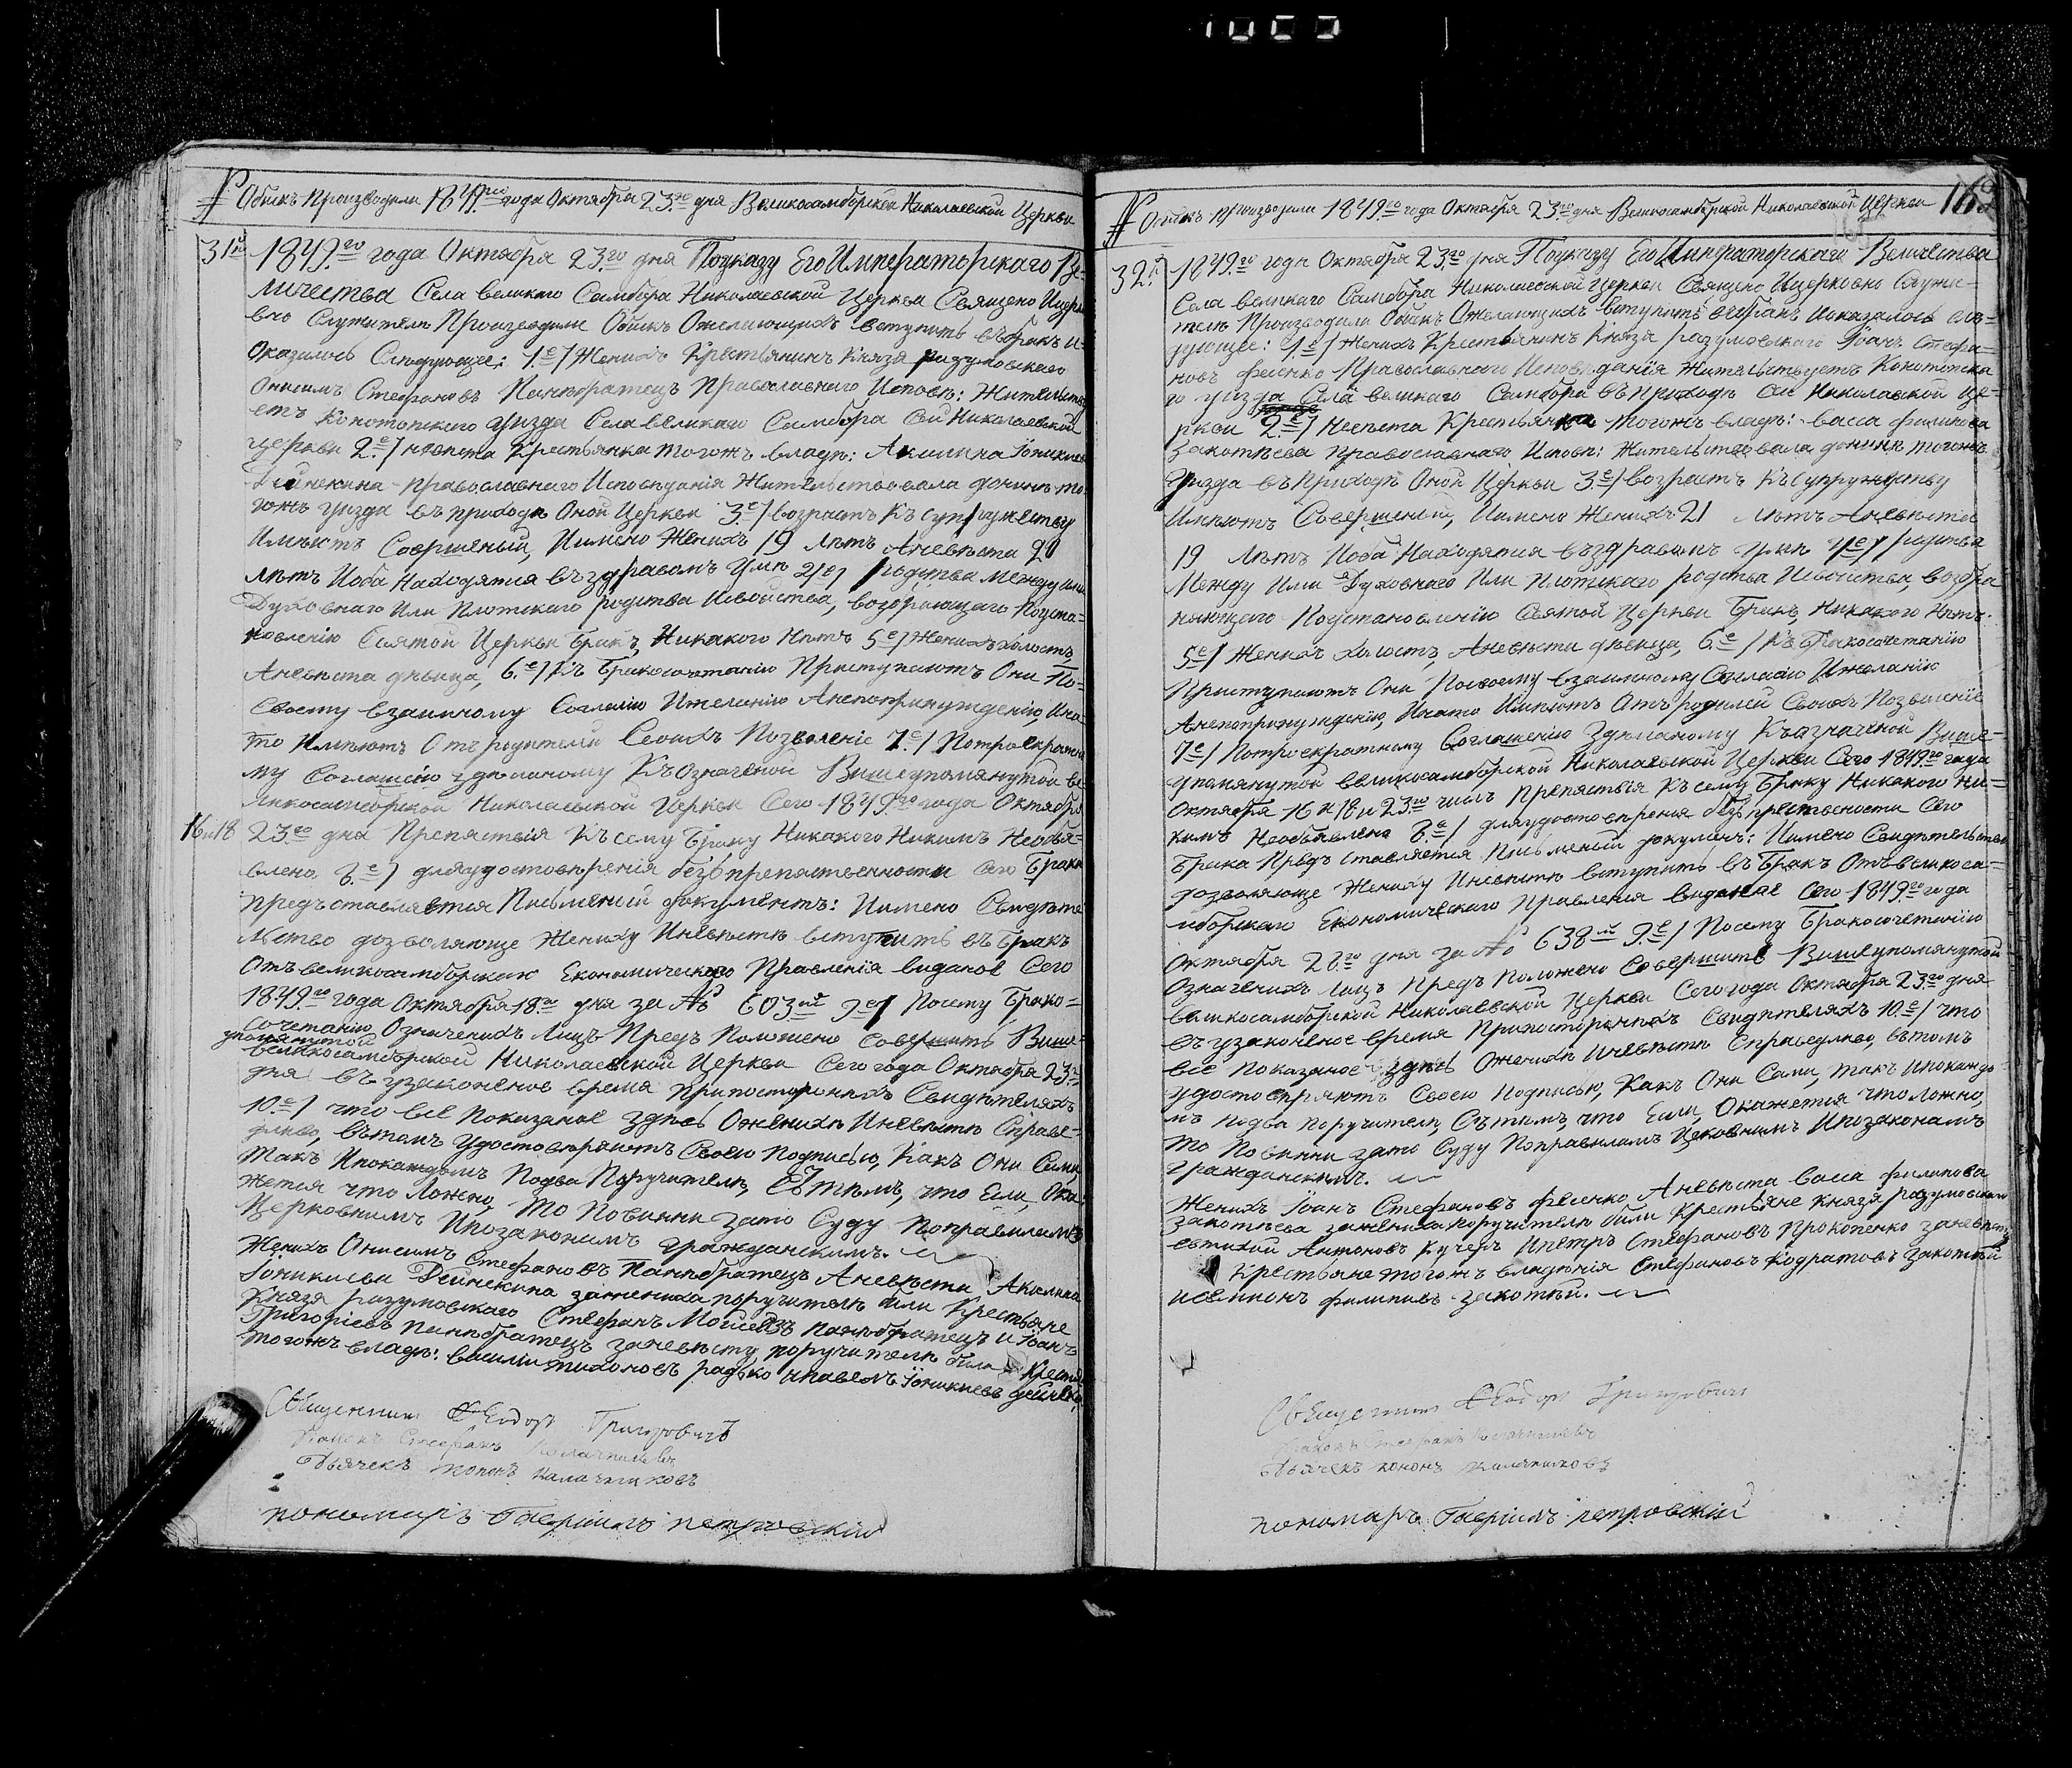 Обискъ Производили 1849го года Октября 23го дня Великосамборской Николаевской Церкви
31й 1849го года Октября 23го дня Поуказу Его Императорскаго Ве-
личества Села великого Самбора Николаевской Церкви Священо Ицерко
вно Служители Производили Обискъ Ожелающихъ вступить въбракъ и-
Оказалось Следующее: 1е/ Женихъ Крестьянинъ Князя разумовскаго
Онисимъ Стефановъ Панибратецъ Православнаго Исповъ: Жительству
етъ Конотопского уизда Села великаго Самбора Сей Николаевской
Церкви 2е/ невъста Крестьянка тогожъ владъ: Акилина Іоникиева
Дейнекина Православнаго Исповъданія Жительствовала донинъ то
гожъ уизда въ приходъ Оной Церкви 3е/ возрастъ Къ супружеству
Имъютъ Совершеный, Иимено Женихъ 19 лътъ Аневъста 20
лътъ Иоба Находятся въздравомъ умъ 4е/ родства Между ими
Духовнаго Или Плотскаго родства Исвойства, возбраняющаго Поуста-
новленію Святой Церкви бракъ, Никакого Нътъ 5е/ Женихъ холостъ,
Аневъста дъвица, 6е/ Къ бракосочетанію Приступаютъ Они По-
Своему взаимному Согласію Ижеланію Анепопринужденію, Ина
то Имъютъ Отъ родителей Своихъ Позволеніе 7е/ Потроекратно
му Соглашенію здъланому Къ Означеной Вишеупомянутой ве
ликосамборской Николаевской Церкви Сего 1849го года Октября
16 и 18 23го дня Препятствія Къ сему браку Никакого Никимъ Необъя-
влено 8е/ дляудостовъренія безъпрепятственности Сего Брака
предъставляется Писменний документъ: Иимено Свидъте
льство дозволяюще Жениху Иневъстъ вступить въ Бракъ
Отъ великосамборскаго Економическаго Правленія виданое Сего
1849го года Октября 18го дня за № 603м 9е/ Посему Брако-
сочетанію Означенихъ лицъ Предъ Положено Совершить Више-
упомянутой
великосамборской Николаевской Церкви Сего года Октября 23го
дня въ узаконеное время Припостороннихъ Свидътеляхъ
10е/ что все Показаное здъсь Ожениха Иневъстъ Справе-
дливо, вътомъ удостовъряютъ Своею Подписью, Какъ Они Сами
такъ Ипокаждомъ Подва Поручителя, Сътъмъ, что Если, Ока
жется что ложно, то Повинни зато Суду Поправиламъ
Церковнимъ Ипозаконамъ гражданскимъ.
Женихъ Онисимъ Стефановъ Панибратецъ Аневъста Акилина
Іоникиева Дейнекина зажениха поручители били Крестьяне
Князя разумовскаго Стефанъ Моисеевъ Панибратецъ и Іоанъ
Григориевъ Панибратецъ заневъсту поручители били Крест
тогожъ владъ: василій тихоновъ радько ипавелъ Іоникиевъ дейнека
Священникъ Феодоръ Григровичъ
Стефанъ
Дьячекъ Кононъ Калачниковъ
пономарь Гавріилъ петровскій
Обискъ Производили 1849го года Октября 23го дня Великосамборской Николаевской Церкви
32й 1849го года Октября 23го дня Поуказу Его Императорскаго Величества
Села великаго Самбора Николаевской Церкви Священо Ицерковно Служи-
тели Производили Обискъ Ожелающихъ вступить въбракъ Иоказалось слъ-
дующее: 1е/ Женихъ Крестьянинъ Князя разумовскаго Іоанъ Стефа-
новъ фесенко Православнаго Исповъданія жительствуетъ Конотопска
го уизда Села великаго Самбора въ Приходъ Сей Николаевской Це-
ркви 2е/ Невъста Крестьянка тогожъ владъ: васса филипова
Закотнъева православнаго Исповъ: Жительствовала донинъ тогожъ
уизда въ Приходъ Оной Церкви 3е/ возрастъ Къ Супружеству
Имъютъ Совершеній, Иимено Женихъ 21 лътъ Аневъста
19 лътъ Иоба Находятся въздравомъ умъ 4е/ родства
Между Ими Духовнаго Или плотскаго родства Исвойства, возбра-
няющаго Поустановленію Святой Церкви Бракъ, Никакого Нътъ.
5е/ Женихъ Холостъ, Аневъста дъвица, 6е/ Къ Бракосочетанію
Приступаютъ Они Посвоему взаимному Согласію Ижеланію
Анепопринужденію, Инато Имъютъ Отъ родителей Своихъ Позволеніе
7е/ Потроекратному Соглашенію Здъланому Къозначеной Више-
упомянутой великосамборской Николаевской Церкви Сего 1849го года
Октября 16 и 18 и 23го числъ Препятствія Къ сему Браку Никакого Ни-
кимъ Необъявлено 8е/ дляудостовъренія безъ Сего
Брака Предъставляется Письменій докуминъ: Иимено Свидътельство
дозволяюще Жениху Иневъстъ вступить въ Бракъ Отъ великоса-
мборскаго Економическаго Правленія виданое Сего 1849го года
Октября 20го дня за № 638м 9е/ Посему Бракосочетанію
Означенихъ лицъ Предъ Положено Совершить Вишеупомянутой
великосамборской Николаевской Церкви Сего года Октября 23го дня
въ узаконеное время Припостороннихъ Свидътеляхъ 10е/ что
все Показаное здъсь Ожениха Иневъстъ Справедливо, вътомъ
удостовъряютъ Своею Подписью, Какъ Они Сами, такъ Ипокаждо-
мъ Подва Поручителя, Сътъмъ, что Если, Окажется что ложно,
то Повинни зато Суду Поправиламъ Цековнимъ Ипозаконамъ
гражданскимъ.
Женихъ Іоанъ Стефановъ фесенко Аневъста васса филипова
Закотнъева зажениха поручители били Крестьяне Князя разумовскаго
евтихій Антоновъ Кучеръ Ипетръ Стефановъ Прокопенко заневъсту
Крестьяне тогожъ владънія Стефановъ Кодратовъ закотній
филиповъ закотній.
Священникъ Феодоръ Григровичъ
Стефанъ
Дьячекъ кононъ Калачниковъ
пономарь Гавріилъ петровскій